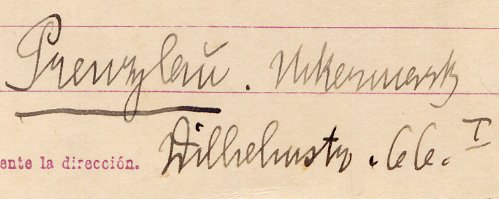 Prenzlau. Uckermark
Wilhelmstr. 66. I
ente la dirección.